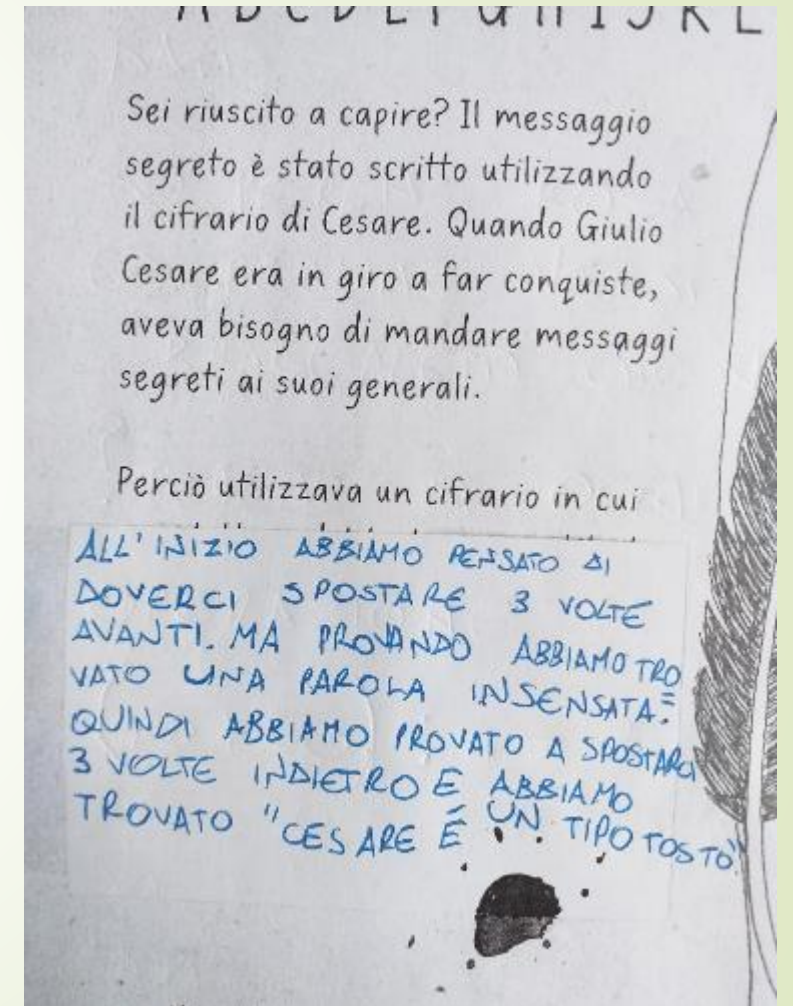 A B C D E F G H I J K L
Sei riuscito a capire? Il messaggio
segreto è stato scritto utilizzando
il cifrario di Cesare. Quando Giulio
Cesare era in giro a far conquiste,
aveva bisogno di mandare messaggi
segreti ai suoi generali.
Perciò utilizzava un cifrario in cui
ALL'INIZIO ABBIAMO PENSATO DI
DOVERCI SPOSTARE 3 VOLTE
AVANTI. MA PROVANDO ABBIAMO TRO
VATO UNA PAROLA INSENSATA.=
QUINDI ABBIAMO PROVATO A SPOSTARCI
3 VOLTE INDIETRO E ABBIAMO
TROVATO "CESARE É UN TIPO TOSTO"